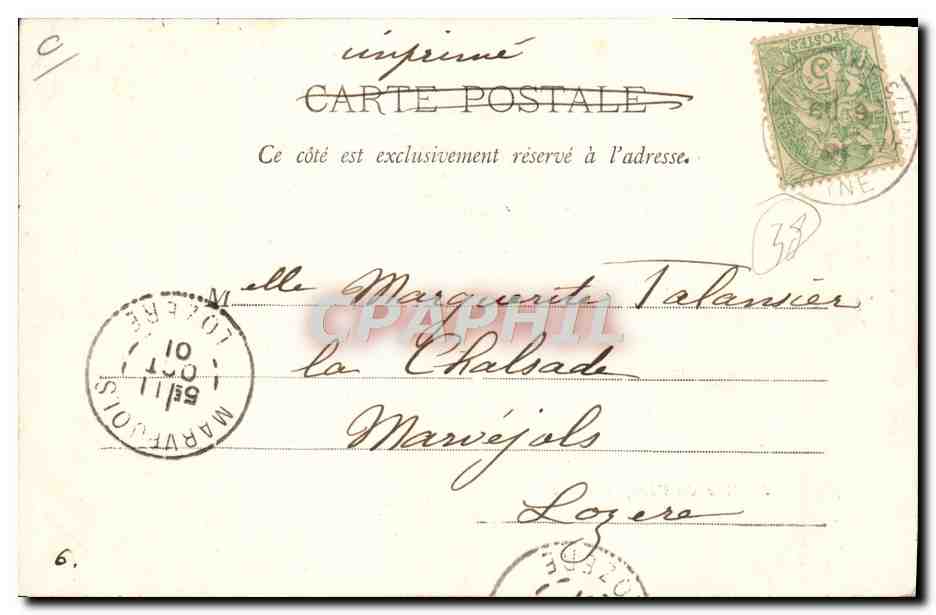 C
imprimé
CARTE POSTALE
Ce côté est exclusivement réservé à l'adresse.
POSTES
5
38
Melle Marguerite Talansier
CPAPHIL
la Chalsade
Marvéjols
Lozere
MARVEJOLS
5E/11
OCT
01
LOZERE
6.
LOZERE